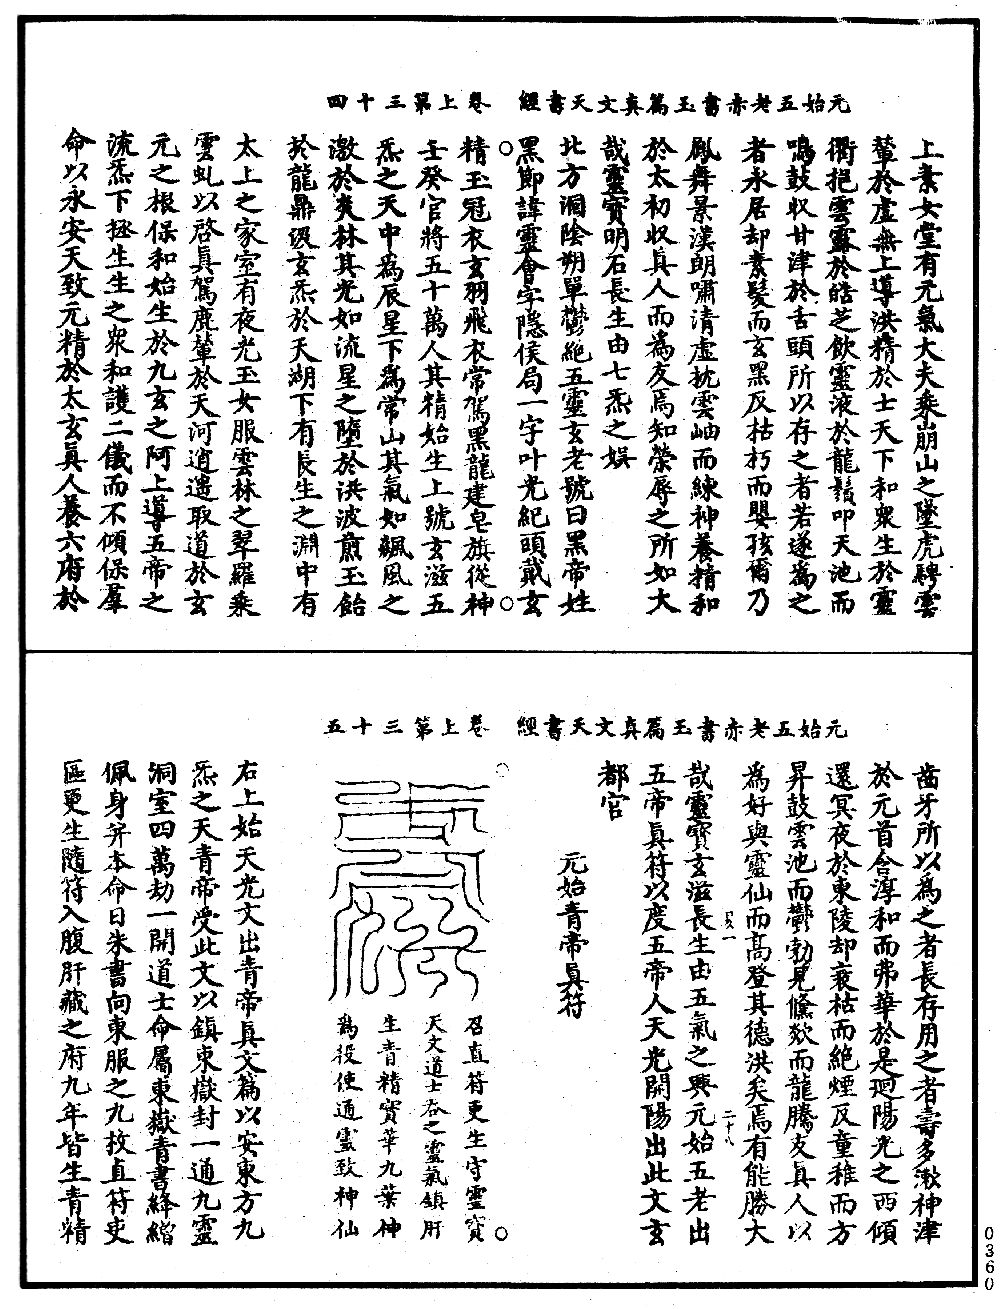 元始五老赤書玉篇真文天書經　卷上第三十四
上素女堂有元氣大夫乘崩山之墜虎騁雲
輦於虛無上導洪精於士天下和衆生於靈
衢挹雲露於皓芝飲靈液於龍鬚叩天池而
鳴鼓収甘津於舌頭所以存之者若遂為之
者永居却素髮而玄黑反枯朽而嬰孩爾乃
鳳舞景漢朗嘯清虛枕雲岫而練神養精和
於太初収真人而為友焉知榮辱之所如大
哉靈寶明石長生由七炁之娱
北方洞陰朔單鬱絶五靈玄老號曰黑帝姓
黑節諱靈會字隱侯局一字叶光紀頭戴玄
精玉冠衣玄羽飛衣常駕黑龍建皂旗從神
壬癸官將五十萬人其精始生上號玄滋五
炁之天中為辰星下為常山其氣如飆風之
激於夾林其光如流星之墮於洪波煎玉飴
於龍鼎汲玄炁於天湖下有長生之淵中有
太上之家室有夜光玉女服雲林之翠羅乘
雲虬以啓真駕鹿輦於天河逍遥取道於玄
元之根保和始生於九玄之阿上導五帝之
流炁下拯生生之衆和護二儀而不傾保羣
命以永安天致元精於太玄真人養六府於
元始五老赤書玉篇真文天書經　卷上第三十五
齒牙所以為之者長存用之者壽多漱神津
於元首含淳和而弗華於是迴陽光之西傾
還冥夜於東陵却衰枯而絶煙反童稚而方
昇鼓雲池而鬱勃見儵欻而龍騰友真人以
為好與靈仙而高登其德洪矣焉有能勝大
二十八
哉靈寶玄滋長生由五氣之興元始五老出
五帝真符以度五帝人天光開陽出此文玄
都宫
元始青帝真符
召直符更生守靈寶
天文道士吞之靈氣鎮肝
生青精寶華九葉神
為役使通靈致神仙
右上始天光文出青帝真文篇以安東方九
炁之天青帝受此文以鎮東嶽封一通九靈
洞室四萬劫一開道士命屬東嶽青書絳繒
佩身并本命日朱書向東服之九枚直符吏
區更生隨符入腹肝藏之府九年皆生青精
0360